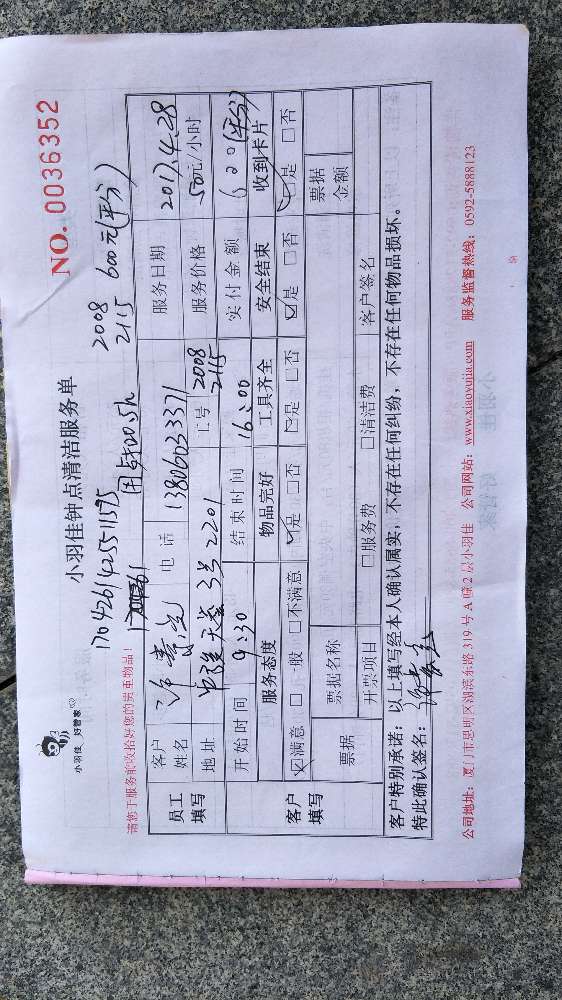 小羽佳 好管家
小羽佳钟点清洁服务单
NO. 0036352
170426142551595
2008
2115 600元(平分)
请您于服务前收拾好您的贵重物品!
用卡20.5h
员工填写
客户姓名
电话 13806033371
服务日期 2017.4.28
地址 中隆天誉 3号 2201
工号 2008 2115
服务价格 50元/小时
开始时间 9:30
结束时间 16:00
实付金额 (平分)
客户填写
服务态度 物品完好 工具齐全 安全结束 收到卡片
☑满意 □一般 □不满意 ☑是 □否 ☑是 □否 ☑是 □否 ☑是 □否
票据 票据名称 □服务费 □清洁费 客户签名 票据金额
开票项目
客户特别承诺:以上填写经本人确认属实,不存在任何纠纷,不存在任何物品损坏。
特此确认签名:
公司地址:厦门市思明区湖滨东路 319 号 A 幢 2 层小羽佳 公司网站:www.xiaoyujia.com 服务监督热线:0592-5888123